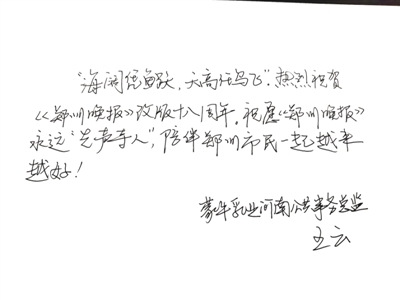 “海阔凭鱼跃，天高任鸟飞”，热烈祝贺
《郑州晚报》改版十八周年，祝愿《郑州晚报》
永远“先声夺人”，陪伴郑州市民一起越来
越好！
蒙牛乳业河南公共事务总监
王云